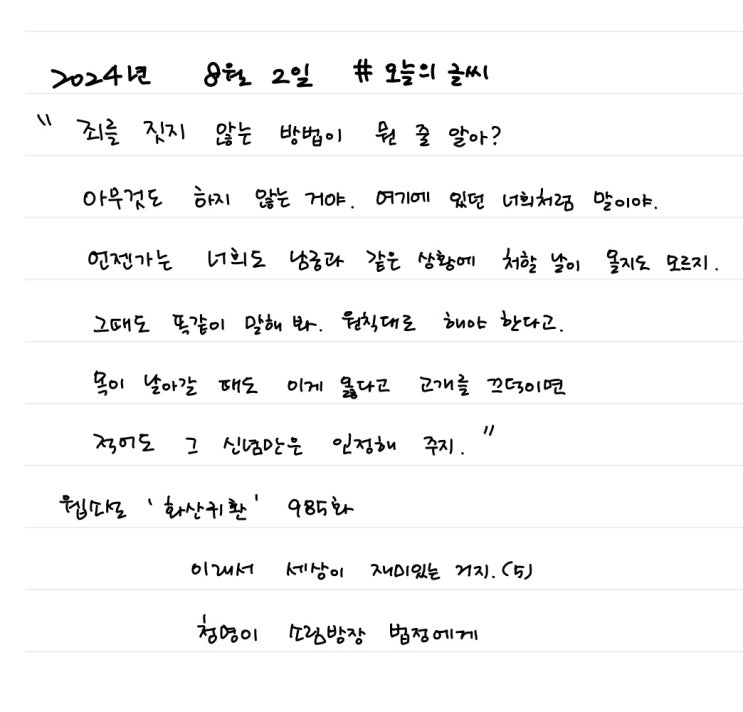 2024년 8월 2일 # 오늘의 글씨
" 죄를 짓지 않는 방법이 뭔 줄 알아?
아무것도 하지 않는 거야. 여기에 있던 너희처럼 말이야.
언젠가는 너희도 남궁과 같은 상황에 처할 날이 올지도 모르지.
그때도 똑같이 말해 봐. 원칙대로 해야 한다고.
목이 날아갈 때도 이게 옳다고 고개를 끄덕이면
적어도 그 신념만은 인정해 주지. "
웹소설 '화산귀환' 985화
이래서 세상이 재미있는 거지. (5)
청명이 소림방장 법정에게